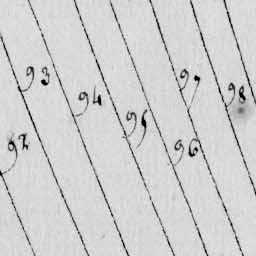 92
93
94
95
96
97
98